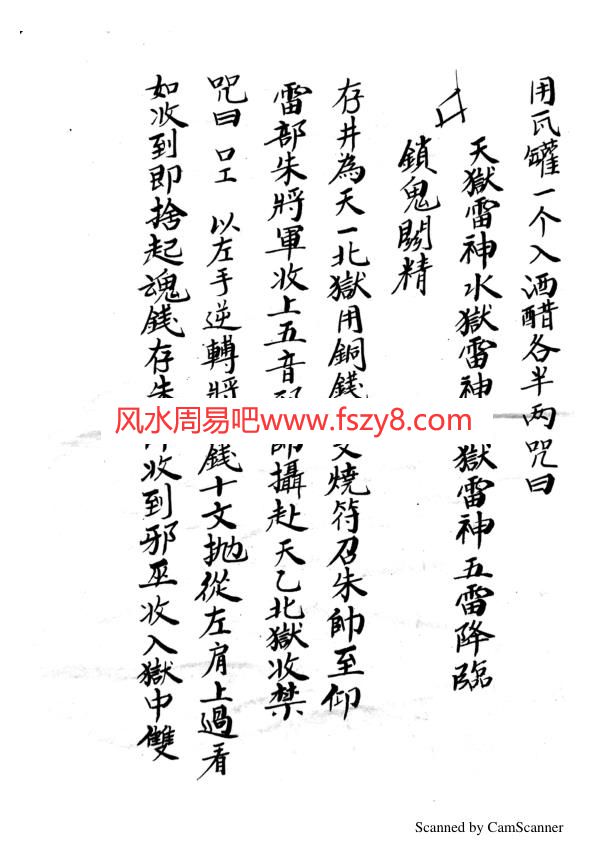 用瓦罐一个入酒醋各半两咒曰
天獄雷神水獄雷神 獄雷神五雷降臨
鎖鬼関精
存井為天一北獄用銅錢 燒符召朱帥至仰
雷部朱將軍收上五音 帥攝赴天乙北獄收禁
咒曰 以左手逆轉將 錢十文拋從左肩上過看
如收到即捨起魂錢存朱 收到邪巫收入獄中雙
风水周易吧www.fszy8.com
Scanned by CamScanner